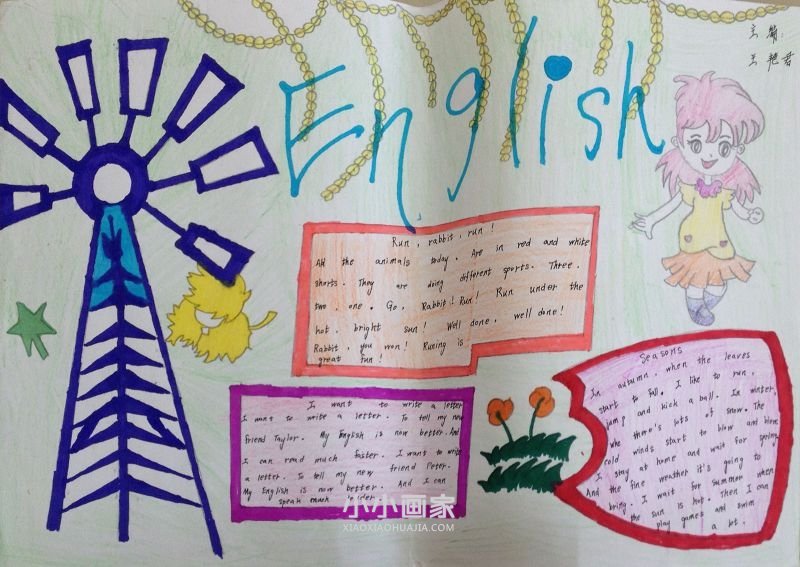 English
主编:
王艳君
Run, rabbit, run!
All the animals today. Are in red and white
shorts. They are doing different sports. Three,
two, one. Go, Rabbit! Run! Run under the
hot, bright sun! Well done, well done!
Rabbit, you won! Runing is
great fun!
I want to write a letter
I want to write a letter. To tell my new
friend Taylor. My English is now better. And
I can read much faster. I want to write
a letter. To tell my new friend Peter.
My English is now better. And I can
speak much
Seasons
In autumn, when the leaves
start to fall. I like to run,
jump and kick a ball. In winter,
whe there's lots of snow. The
cold winds start to blow and blow.
I stay at home and wait for spring.
And the fine weather it's going to
bring. I wait for summer when
the sun is hot. Then I can
play games and swim
a lot.
小小画家
XIAOXIAOHUAJIA.COM